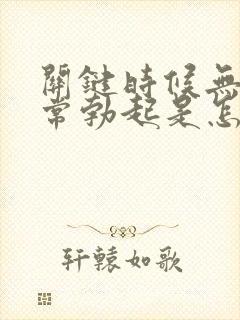 關鍵時候無
常勃起是怎
轩辕如歌